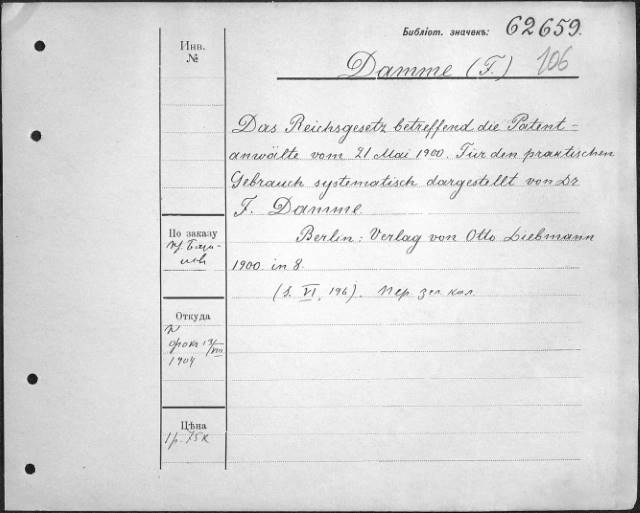 Библіот. значекъ: 62659.
Инв.
№
Damme (F.) 106
Das Reichsgesetz betreffend die Patent-
anwälte vom 21 Mai 1900. Für den praktischen
Gebrauch systematisch dargestellt von Dr
F. Damme.
Berlin: Verlag von Otto Liebmann
1900. in 8.
(S. VI, 196). пер. зел. кол.
По заказу
Откуда
1904
Цѣна
1 р. 75 к